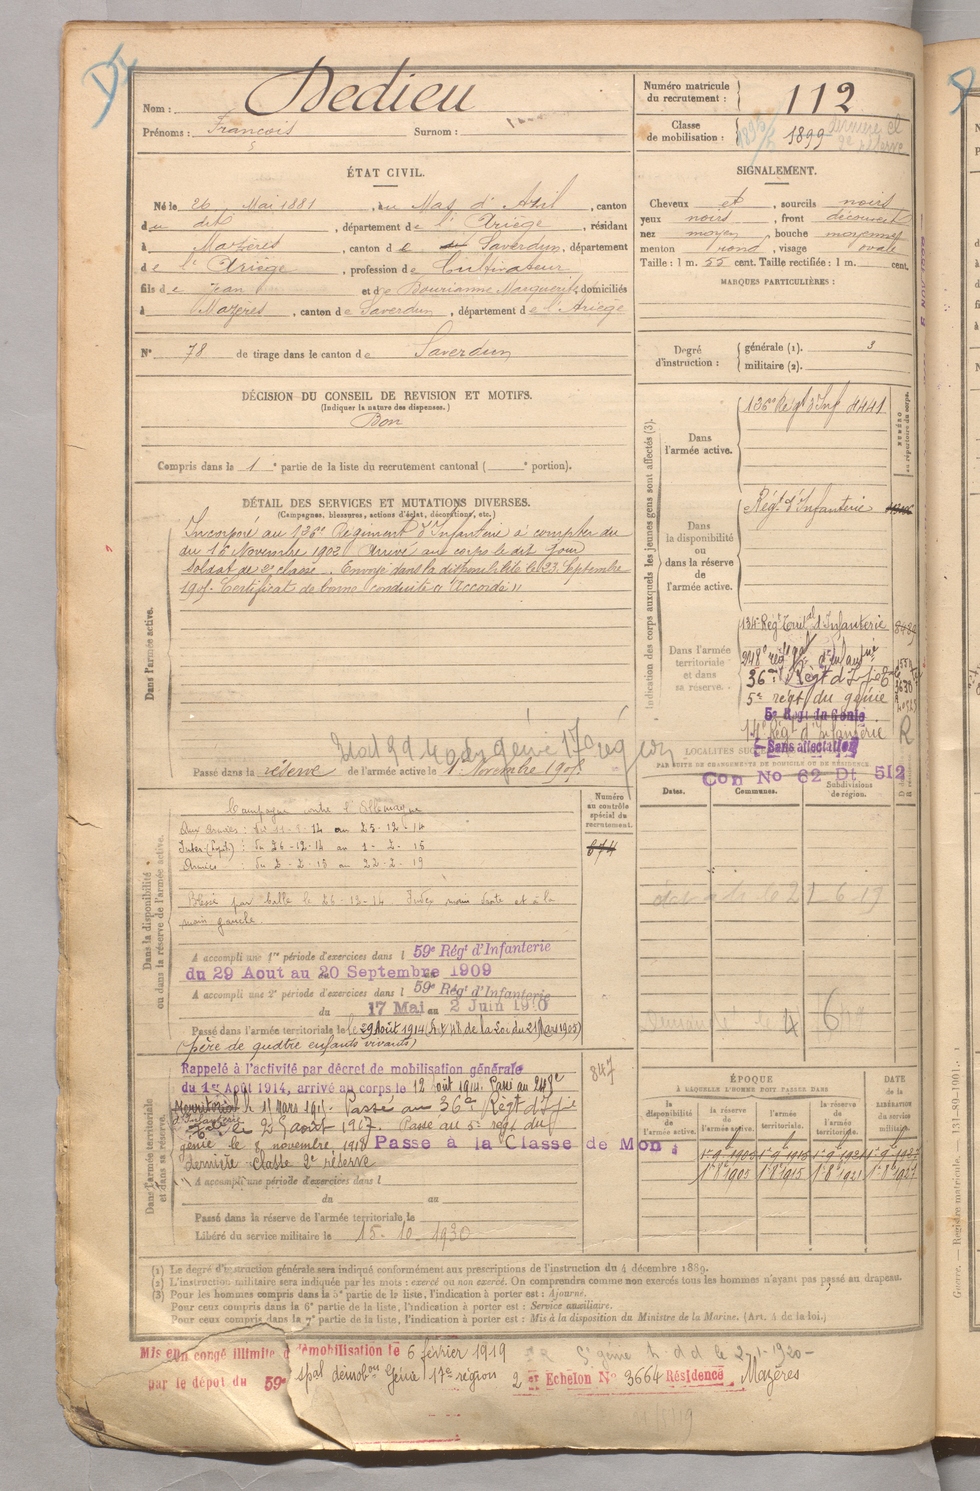 Nom : Dedieu
Prénoms : François Surnom :
Numéro matricule du recrutement : 112
Classe de mobilisation : 1899 dernière cl 2e réserve
ÉTAT CIVIL.
Né le 26 Mai 1881, au Mas d'Azil, canton
du dit, département de l'Ariège, résidant
à Mazères, canton de Saverdun, département
de l'Ariège, profession de Cultivateur
fils de Jean et de Bourianne Marguerite, domiciliés
à Mazères, canton de Saverdun, département de l'Ariège
N° 78 de tirage dans le canton de Saverdun
SIGNALEMENT.
Cheveux et, sourcils noirs
yeux noirs, front découvert
nez moyen, bouche moyenne
menton rond, visage ovale
Taille : 1 m. 55 cent. Taille rectifiée : 1 m. cent.
MARQUES PARTICULIÈRES :
Degré d'instruction : générale (1). 3
militaire (2).
DÉCISION DU CONSEIL DE REVISION ET MOTIFS.
(Indiquer la nature des dispenses.)
Bon
Compris dans la 1e partie de la liste du recrutement cantonal ( e portion).
DÉTAIL DES SERVICES ET MUTATIONS DIVERSES.
(Campagnes, blessures, actions d'éclat, décorations, etc.)
Dans l'armée active.
Incorporé au 136e Régiment d'Infanterie à compter du
du 16 Novembre 1902 Arrivé au corps le dit jour
soldat de 2e classe. Envoyé dans la disponibilité le 23 Septembre
1905. Certificat de bonne conduite "Accordé"
Passé dans la réserve de l'armée active le 1 Novembre 1905
Indication des corps auxquels les jeunes gens sont affectés (3).
Dans l'armée active.
136e Régt d'Inf 4441
NUMÉRO au répertoire du corps.
Dans la disponibilité ou dans la réserve de l'armée active.
Régt d'Infanterie
Dans l'armée territoriale et dans sa réserve.
134e Régt Territal d'Infanterie
248e rég
36me Régt d'Inf
5e régt du génie
5e Régt du Génie
14e Régt d'Infanterie R
Sans affectation
Con No 62 Dt 512
PAR SUITE DE CHANGEMENTS DE DOMICILE OU DE RÉSIDENCE
Dates. Communes. Subdivisions de région.
Numéro au contrôle spécial du recrutement.
674
Dans la disponibilité ou dans la réserve de l'armée active.
Campagne contre l'Allemagne
Aux Armées : du 11-9-14 au 25-12-14
Inter (hop) : du 26-12-14 au 1-2-15
Armées du 2-2-15 au 22-2-19
Blessé par balle le 26-12-14. Index main droite et à la
main gauche.
A accompli une 1re période d'exercices dans l 59e Régt d'Infanterie
du 29 Aout au 20 Septembre 1909
A accompli une 2e période d'exercices dans l 59e Régt d'Infanterie
du 17 Mai au 2 Juin 1910
Passé dans l'armée territoriale le 29 Août 1914 (de la Loi du 21 Mars 1905)
(père de quatre enfants vivants)
Dans l'armée territoriale et dans sa réserve.
Rappelé à l'activité par décret de mobilisation générale
du 1er Août 1914, arrivé au corps le 12 août 1914. Passé au 248e
Territorial le 11 Mars 1915. Passé au 36e Régt d'Inf
le 25 août 1917. Passé au 5e régt du
génie le 8 novembre 1918 Passe à la Classe de Mon
dernière classe 2e réserve
847
A accompli une période d'exercices dans l
du au
Passé dans la réserve de l'armée territoriale le
Libéré du service militaire le 15-10-1930
ÉPOQUE
À LAQUELLE L'HOMME DOIT PASSER DANS
la disponibilité de l'armée active. la réserve de l'armée active. l'armée territoriale. la réserve de l'armée territoriale.
DATE DE LA LIBÉRATION du service militaire.
1-9-1905 1-9-1915 1-9-1921 1-9-1927
1-8-1905 1-8-1915 1-8-1921 1-8-1927
(1) Le degré d'instruction générale sera indiqué conformément aux prescriptions de l'instruction du 4 décembre 1889.
(2) L'instruction militaire sera indiquée par les mots : exercé ou non exercé. On comprendra comme non exercés tous les hommes n'ayant pas passé au drapeau.
(3) Pour les hommes compris dans la 5e partie de la liste, l'indication à porter est : Ajourné.
Pour ceux compris dans la 6e partie de la liste, l'indication à porter est : Service auxiliaire.
Pour ceux compris dans la 7e partie de la liste, l'indication à porter est : Mis à la disposition du Ministre de la Marine. (Art. 4 de la loi.)
Mis en congé illimité de démobilisation le 6 février 1919
par le dépôt du 59e démobon Génie 17e région 2 Echelon N° 3664 Résidence Mazères